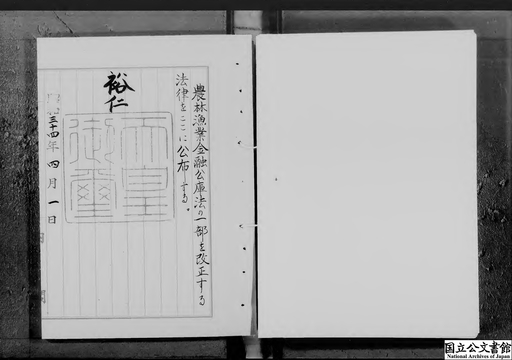 農林漁業金融公庫法の一部を改正する
法律をここに公布する。
裕仁
天皇
御璽
昭和三十四年四月一日
国立公文書館
National Archives of Japan